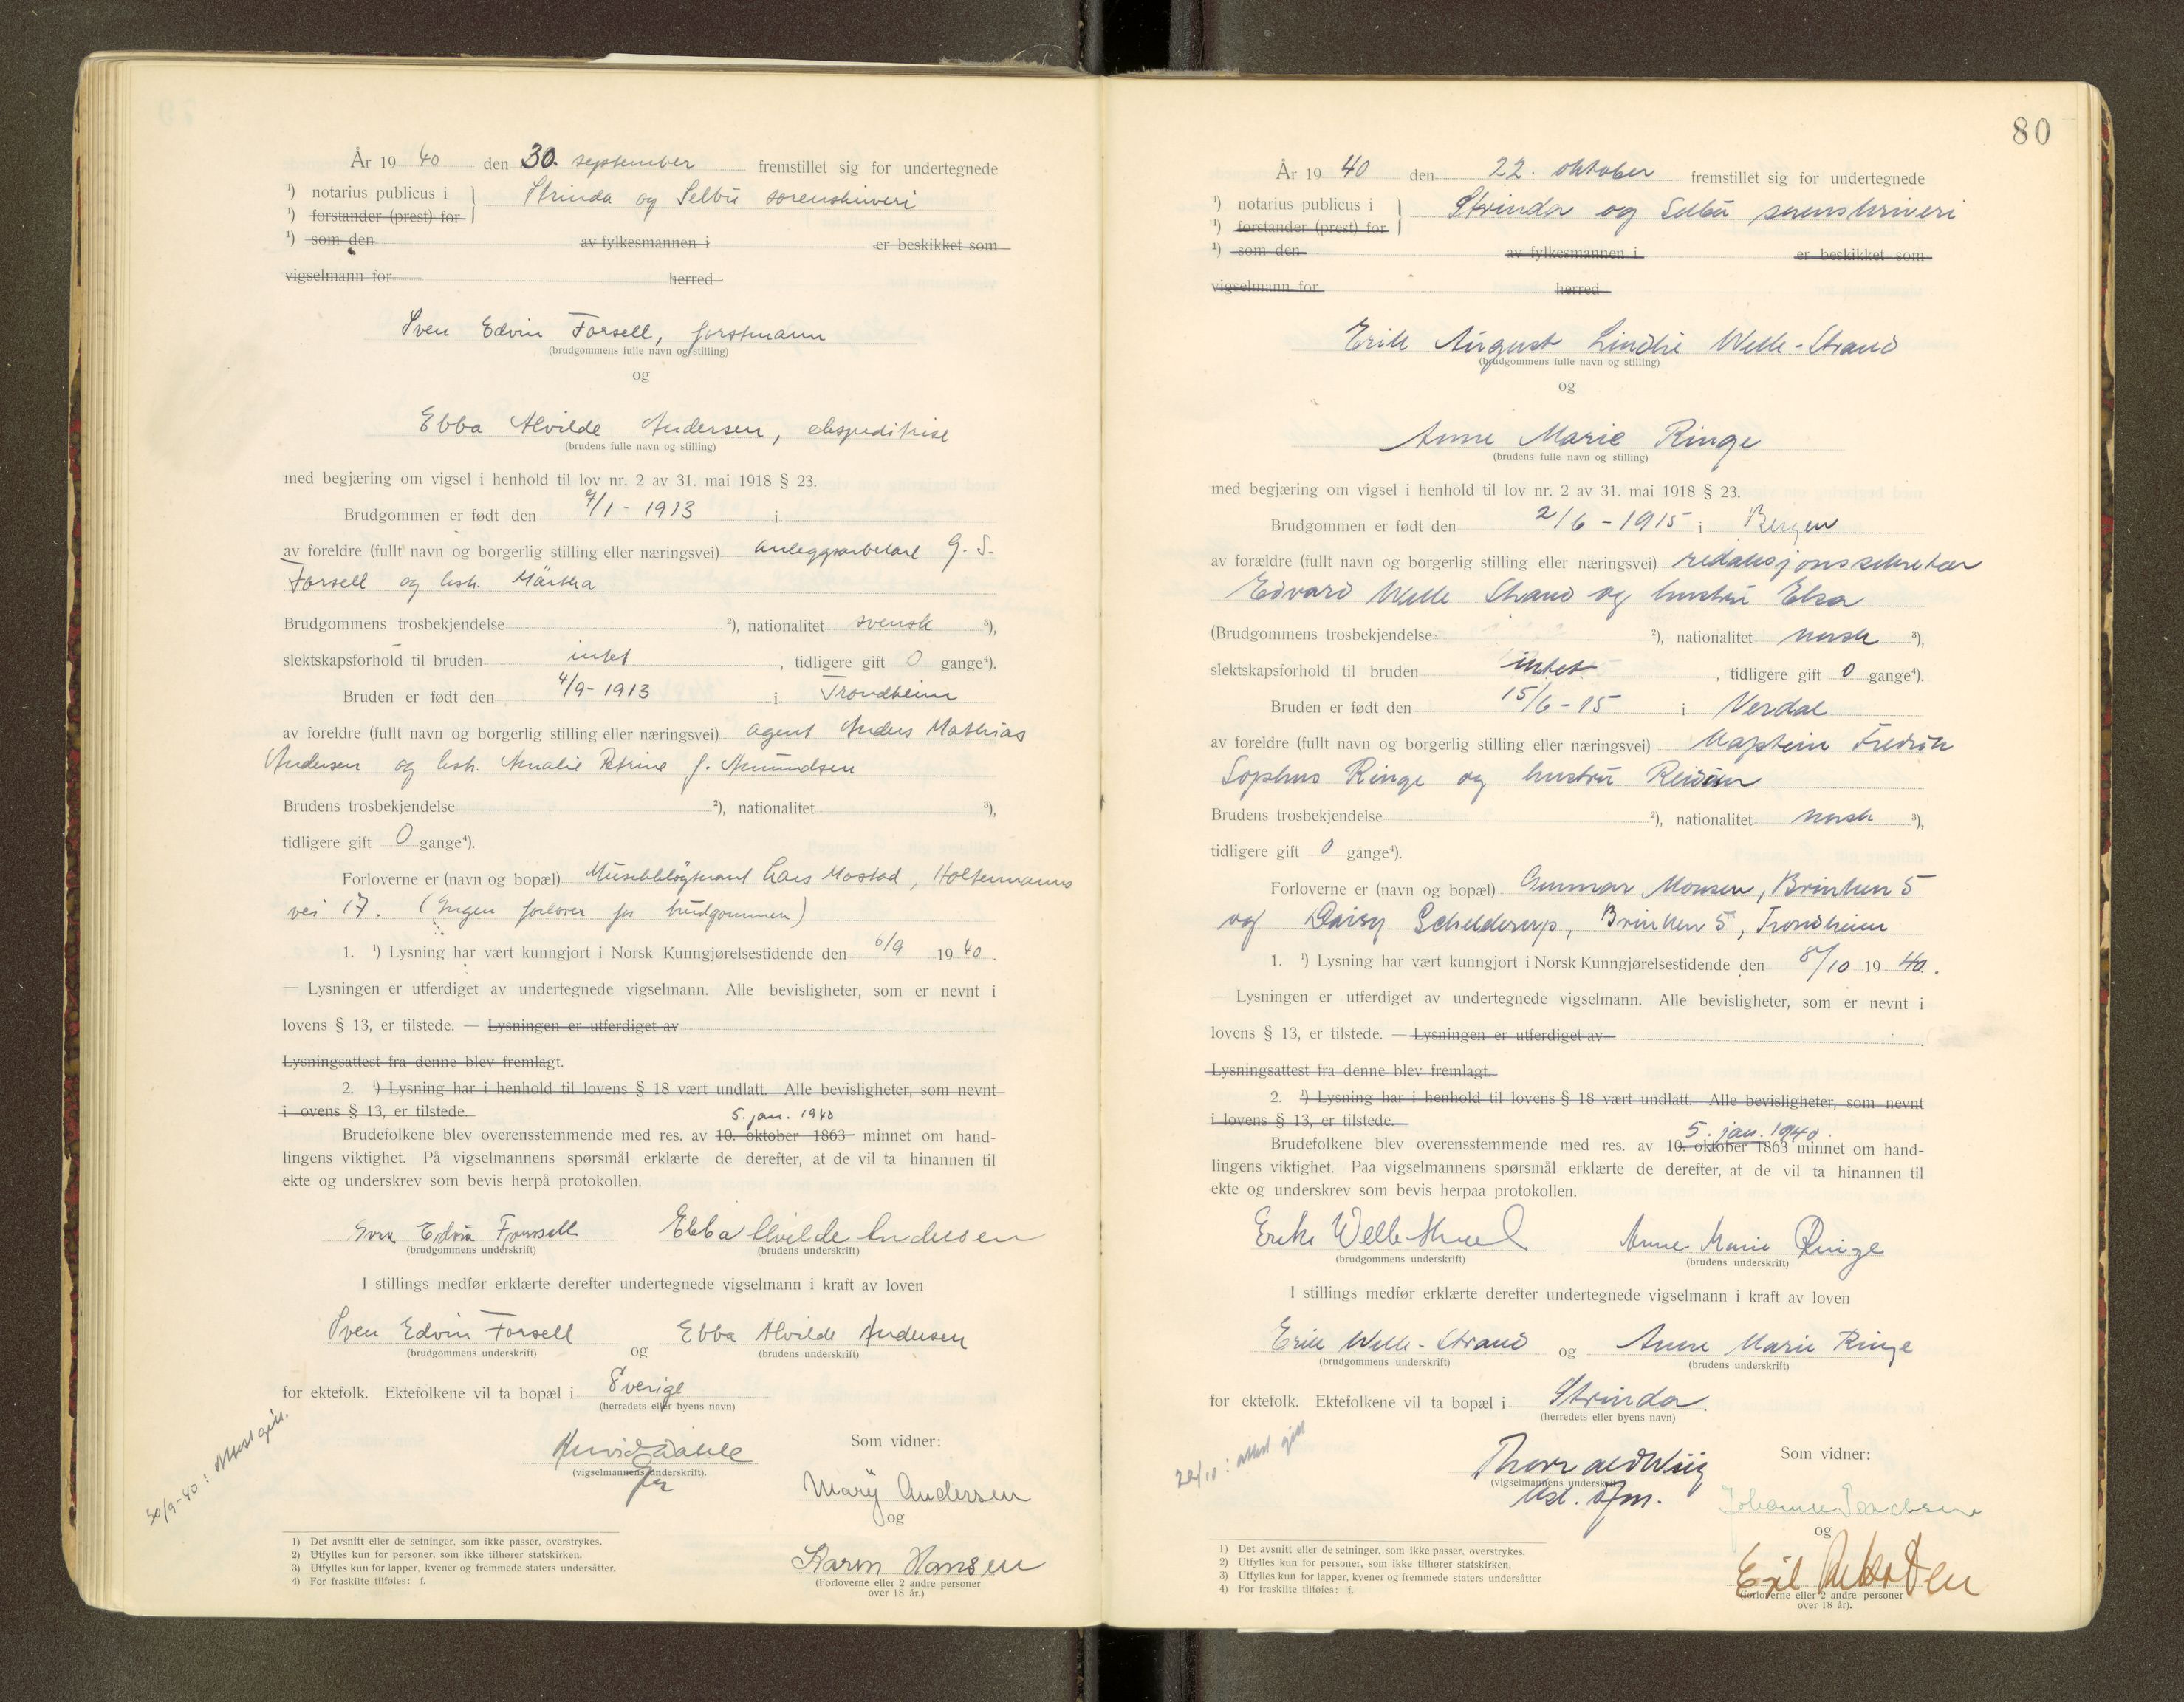 År 19 40 den 30. september fremstillet sig for undertegnede
¹) notarius publicus i } Strinda og Selbu sorenskriveri
¹) forstander (prest) for
¹) som den av fylkesmannen i er beskikket som
vigselmann for herred
Sven Edvin Forsell, forstmann
(brudgommens fulle navn og stilling)
og
Ebba Alvilde Andersen, ekspeditrise
(brudens fulle navn og stilling)
med begjæring om vigsel i henhold til lov nr. 2 av 31. mai 1918 § 23.
Brudgommen er født den 7/1 - 1913 i
av foreldre (fullt navn og borgerlig stilling eller næringsvei) anleggsarbetare G. S.
Forsell og hstr. Märtha
Brudgommens trosbekjendelse ²), nationalitet svensk ³),
slektskapsforhold til bruden intet , tidligere gift 0 gange⁴).
Bruden er født den 4/9 - 1913 i Trondheim
av foreldre (fullt navn og borgerlig stilling eller næringsvei) agent Anders Mathias
Andersen og hstr. Amalie Petrine f. Amundsen
Brudens trosbekjendelse ²), nationalitet ³),
tidligere gift 0 gange⁴).
Forloverne er (navn og bopæl) Lars Mostad, Holtermanns
vei 17. (Ingen forlover for brudgommen)
1. ¹) Lysning har vært kunngjort i Norsk Kunngjørelsestidende den 6/9 19 40.
— Lysningen er utferdiget av undertegnede vigselmann. Alle bevisligheter, som er nevnt i
lovens § 13, er tilstede. — Lysningen er utferdiget av
Lysningsattest fra denne blev fremlagt.
2. ¹) Lysning har i henhold til lovens § 18 vært undlatt. Alle bevisligheter, som nevnt
i ovens § 13, er tilstede.
5. jan. 1940
Brudefolkene blev overensstemmende med res. av 10. oktober 1863 minnet om hand-
lingens viktighet. På vigselmannens spørsmål erklærte de derefter, at de vil ta hinannen til
ekte og underskrev som bevis herpå protokollen.
Sven Edvin Forssell Ebba Alvilde Andersen
(brudgommens underskrift) (brudens underskrift)
I stillings medfør erklærte derefter undertegnede vigselmann i kraft av loven
Sven Edvin Forsell og Ebba Alvilde Andersen
(brudgommens underskrift) (brudens underskrift)
for ektefolk. Ektefolkene vil ta bopæl i Sverige
(herredets eller byens navn)
30/9-40: Attest gitt.
Som vidner:
(vigselmannens underskrift).
Mary Andersen
og
Karin Hansen
(Forloverne eller 2 andre personer
over 18 år.)
1) Det avsnitt eller de setninger, som ikke passer, overstrykes.
2) Utfylles kun for personer, som ikke tilhører statskirken.
3) Utfylles kun for lapper, kvener og fremmede staters undersåtter.
4) For fraskilte tilføies: f.
80
År 19 40 den 22. oktober fremstillet sig for undertegnede
¹) notarius publicus i } Strinda og Selbu sorenskriveri
¹) forstander (prest) for
¹) som den av fylkesmannen i er beskikket som
vigselmann for herred
Erik August Lindhé Welle-Strand
(brudgommens fulle navn og stilling)
og
Anne Marie Ringe
(brudens fulle navn og stilling)
med begjæring om vigsel i henhold til lov nr. 2 av 31. mai 1918 § 23.
Brudgommen er født den 2/6 - 1915 i Bergen
av forældre (fullt navn og borgerlig stilling eller næringsvei) redaksjonssekretær
Edvard Welle Strand og hustru Elsa
(Brudgommens trosbekjendelse ²), nationalitet norsk ³),
slektskapsforhold til bruden intet , tidligere gift 0 gange⁴).
Bruden er født den 15/6 - 15 i Verdal
av foreldre (fullt navn og borgerlig stilling eller næringsvei) Kaptein Fredrik
Sophus Ringe og hustru Reidun
Brudens trosbekjendelse ²), nationalitet norsk ³),
tidligere gift 0 gange⁴).
Forloverne er (navn og bopæl) Gunnar Monsen, Brinken 5
og Daisy Schelderup, Brinken 5, Trondheim
1. ¹) Lysning har vært kunngjort i Norsk Kunngjørelsestidende den 8/10 19 40.
— Lysningen er utferdiget av undertegnede vigselmann. Alle bevisligheter, som er nevnt i
lovens § 13, er tilstede. — Lysningen er utferdiget av
Lysningsattest fra denne blev fremlagt.
2. ¹) Lysning har i henhold til lovens § 18 vært undlatt. Alle bevisligheter, som nevnt
i lovens § 13, er tilstede.
5. jan. 1940.
Brudefolkene blev overensstemmende med res. av 10. oktober 1863 minnet om hand-
lingens viktighet. Paa vigselmannens spørsmål erklærte de derefter, at de vil ta hinannen til
ekte og underskrev som bevis herpaa protokollen.
Erik Welle-Strand Anne-Marie Ringe
(brudgommens underskrift) (brudens underskrift)
I stillings medfør erklærte derefter undertegnede vigselmann i kraft av loven
Erik Welle-Strand og Anne Marie Ringe
(brudgommens underskrift) (brudens underskrift)
for ektefolk. Ektefolkene vil ta bopæl i Strinda.
(herredets eller byens navn)
22/10: attest gitt
Som vidner:
Thorvald Wiig
(vigselmannens underskrift)
Johanne
og
(forloverne eller 2 andre personer
over 18 år).
1) Det avsnitt eller de setninger, som ikke passer, overstrykes.
2) Utfylles kun for personer, som ikke tilhører statskirken.
3) Utfylles kun for lapper, kvener og fremmede staters undersåtter
4) For fraskilte tilføies: f.